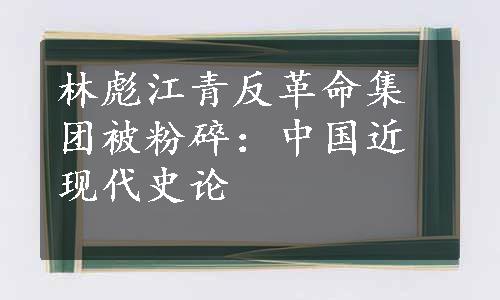 林彪江青反革命集
团被粉碎：中国近
现代史论